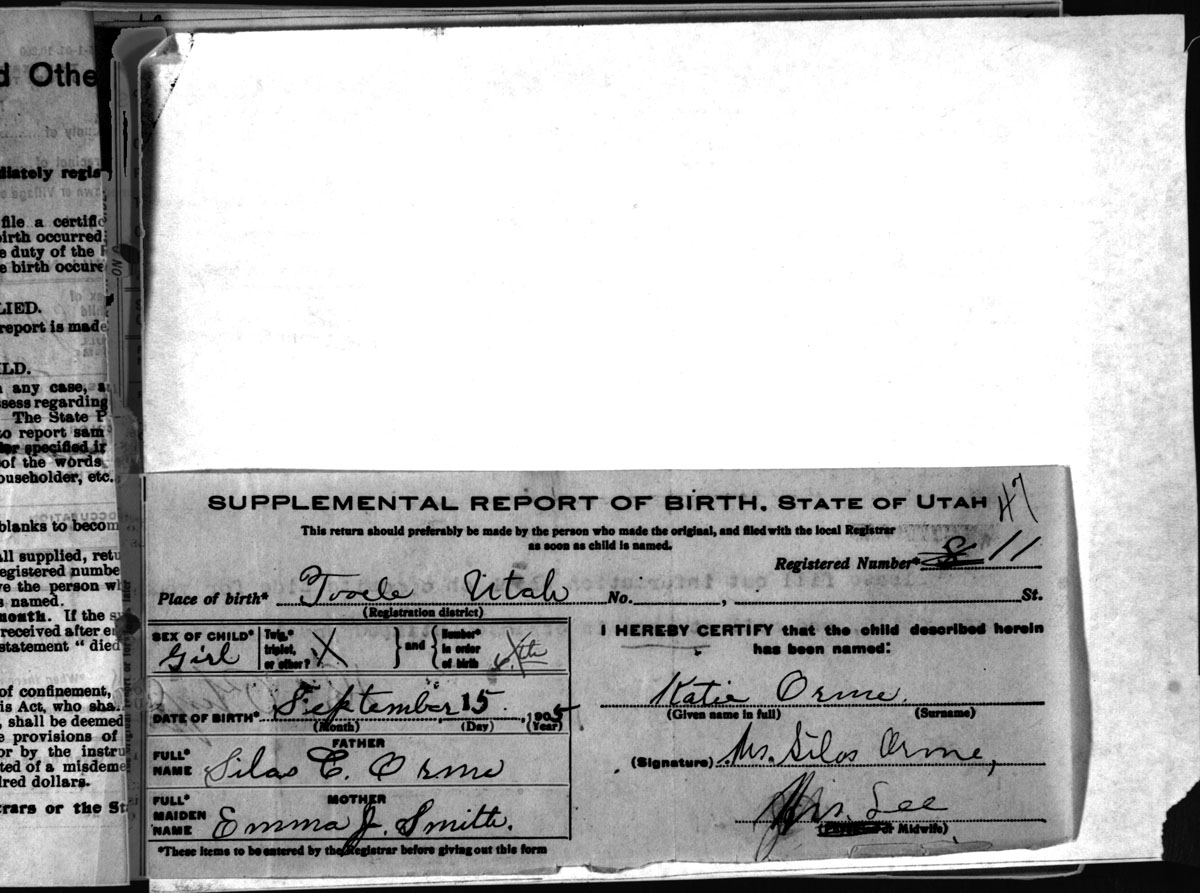 d Othe
diately regis
file a certific
birth occurred
e duty of the
e birth occure
LIED.
report is made
ILD.
any case, a
ssess regarding
The State P
to report sam
or specified in
of the words
ouseholder, etc.
blanks to becom
all supplied, retu
egistered numbe
ve the person wh
s named.
month. If the
received after
statement "died
of confinement,
is Act, who sha
, shall be deemed
e provisions of
or by the instru
ted of a misdeme
dred dollars.
rars or the St
SUPPLEMENTAL REPORT OF BIRTH. STATE OF UTAH 47
This return should preferably be made by the person who made the original, and filed with the local Registrar
as soon as child is named.
Registered Number* 11
Place of birth* Tooele Utah No. , St.
(Registration district)
SEX OF CHILD* Girl
Twin,* triplet, or other? X
and
Number* in order of birth
I HEREBY CERTIFY that the child described herein
has been named:
DATE OF BIRTH* September 15, 1905
(Month) (Day) (Year)
Katie Orme.
(Given name in full) (Surname)
FATHER
FULL* NAME Silas C. Orme
(Signature) Mrs. Silas Orme,
MOTHER
FULL* MAIDEN NAME Emma J. Smith.
Mrs. Lee
Midwife)
*These items to be entered by the Registrar before giving out this form